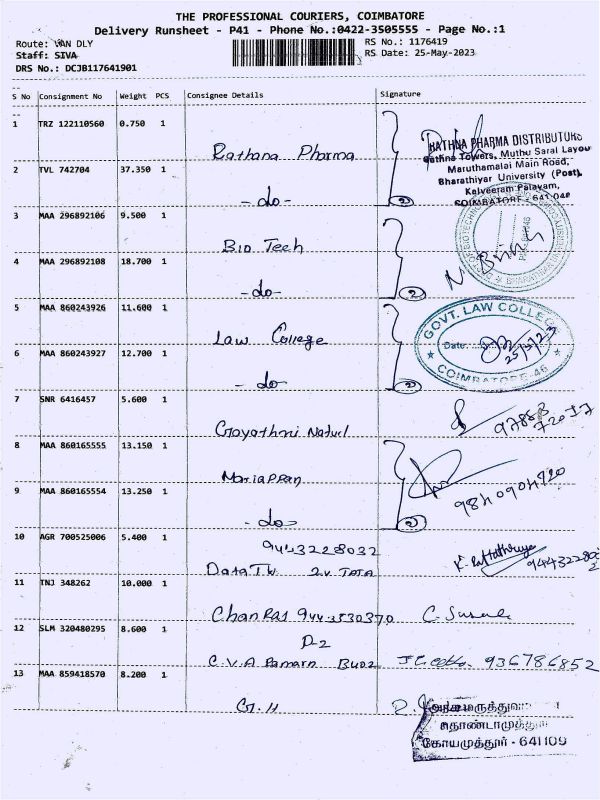 THE PROFESSIONAL COURIERS, COIMBATORE
Delivery Runsheet - P41 - Phone No.:0422-3505555 - Page No.:1
Route: VAN DLY
RS No.: 1176419
Staff: SIVA
RS Date: 25-May-2023
DRS No.: DCJB117641901
S No Consignment No Weight PCS Consignee Details Signature
1 TRZ 122110560 0.750 1
Rathana Pharma
RATHNA PHARMA DISTRIBUTORS
Rathna Towers, Muthu Saral Layou
Maruthamalai Main Road,
Bharathiyar University (Post),
Kalveeram Palayam,
COIMBATORE - 641 046
2 TVL 742704 37.350 1
- do -
2
3 MAA 296892106 9.500 1
Bio Tech
4 MAA 296892108 18.700 1
- do -
2
5 MAA 860243926 11.600 1
Law College
GOVT. LAW COLLEGE
Date:
25/5/23
COIMBATORE-46
6 MAA 860243927 12.700 1
- do -
2
7 SNR 6416457 5.600 1
Gayathri
8 MAA 860165555 13.150 1
Mariappan
9840904820
9 MAA 860165554 13.250 1
- do -
2
10 AGR 700525006 5.400 1
9443228032
11 TNJ 348262 10.000 1
12 SLM 320480295 8.600 1
C.V.A
936786852
13 MAA 859418570 8.200 1
G.H
தொண்டாமுத்து
கோயமுத்தூர் - 641109